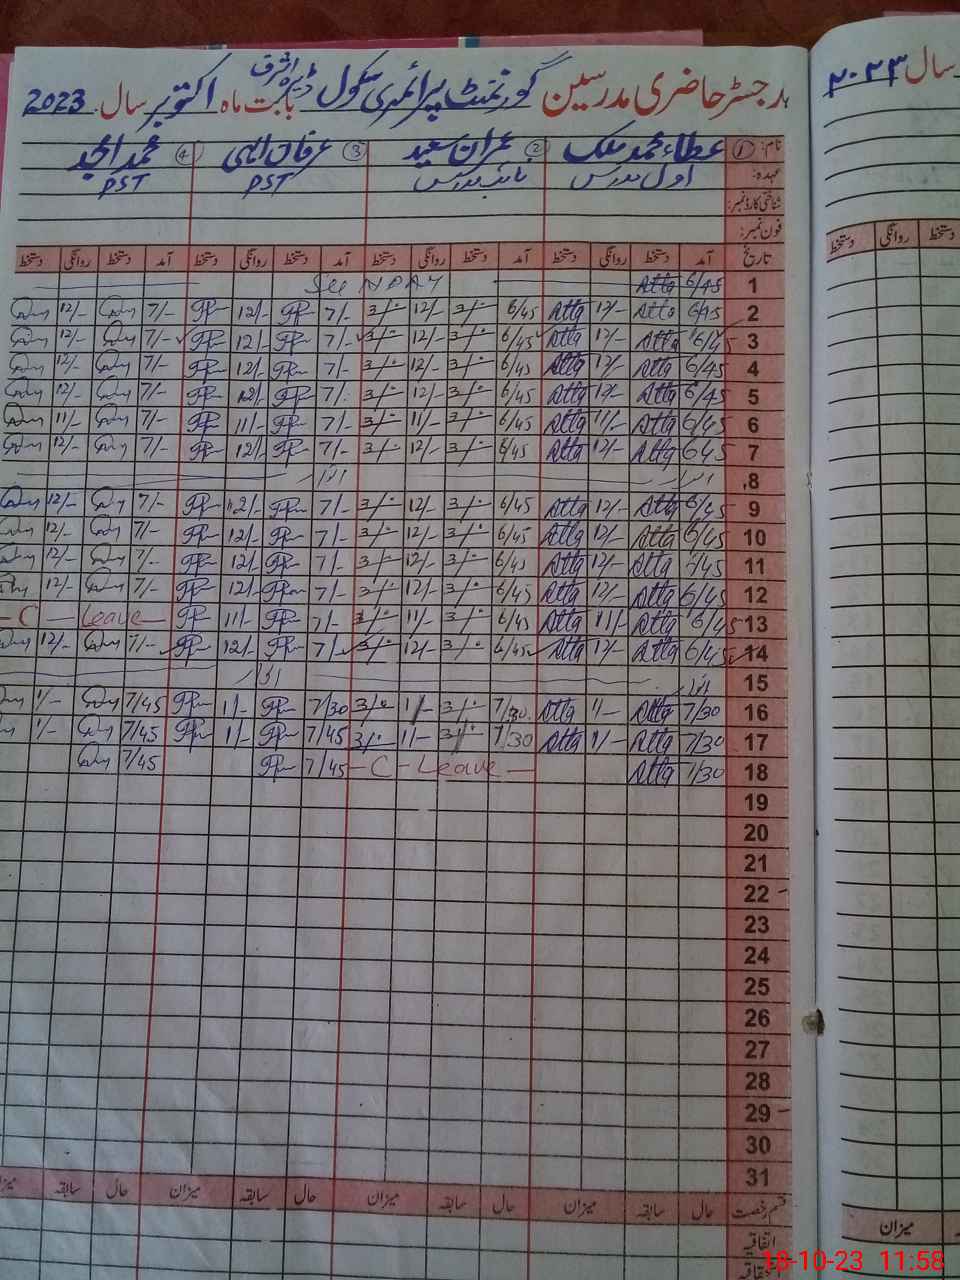 رجسٹر حاضری مدرسین گورنمنٹ پرائمری سکول ڈیرہ اشرف بابت ماہ اکتوبر سال 2023
سال ۲۰۲۳
نام: ① عطاء محمد ملک ② عمران سعید ③ عرفان الہی ④ محمد امجد
عہدہ: اول مدرس نائب مدرس PST PST
شناختی کارڈ نمبر:
فون نمبر:
تاریخ آمد دستخط روانگی دستخط آمد دستخط روانگی دستخط آمد دستخط روانگی دستخط آمد دستخط روانگی دستخط
دستخط روانگی دستخط
1 6/45 Atta SUNDAY
2 6/45 Atta 12/- Atta 6/45 12/- 7/- 12/- 7/- 12/-
3 6/45 Atta 12/- Atta 6/45 12/- 7/- 12/- 7/- 12/-
4 6/45 Atta 12/- Atta 6/45 12/- 7/- 12/- 7/- 12/-
5 6/45 Atta 12/- Atta 6/45 12/- 7/- 12/- 7/- 12/-
6 6/45 Atta 11/- Atta 6/45 11/- 7/- 11/- 7/- 11/-
7 6/45 Atta 12/- Atta 6/45 12/- 7/- 12/- 7/- 12/-
8 اتوار اتوار
9 6/45 Atta 12/- Atta 6/45 12/- 7/- 12/- 7/- 12/-
10 6/45 Atta 12/- Atta 6/45 12/- 7/- 12/- 7/- 12/-
11 6/45 Atta 12/- Atta 6/45 12/- 7/- 12/- 7/- 12/-
12 6/45 Atta 12/- Atta 6/45 12/- 7/- 12/- 7/- 12/-
13 6/45 Atta 11/- Atta 6/45 11/- 7/- 11/- C - Leave
14 6/45 Atta 12/- Atta 6/45 12/- 7/- 12/- 7/- 12/-
15 اتوار اتوار
16 7/30 Atta 1/- Atta 7/30 1/- 7/30 1/- 7/45 1/-
17 7/30 Atta 1/- Atta 7/30 1/- 7/45 1/- 7/45 1/-
18 7/30 Atta C - Leave 7/45 7/45
19
20
21
22
23
24
25
26
27
28
29
30
31
قسم رخصت حال سابقہ میزان حال سابقہ میزان حال سابقہ میزان حال سابقہ میزان
میزان
اتفاقیہ
18-10-23 11:58